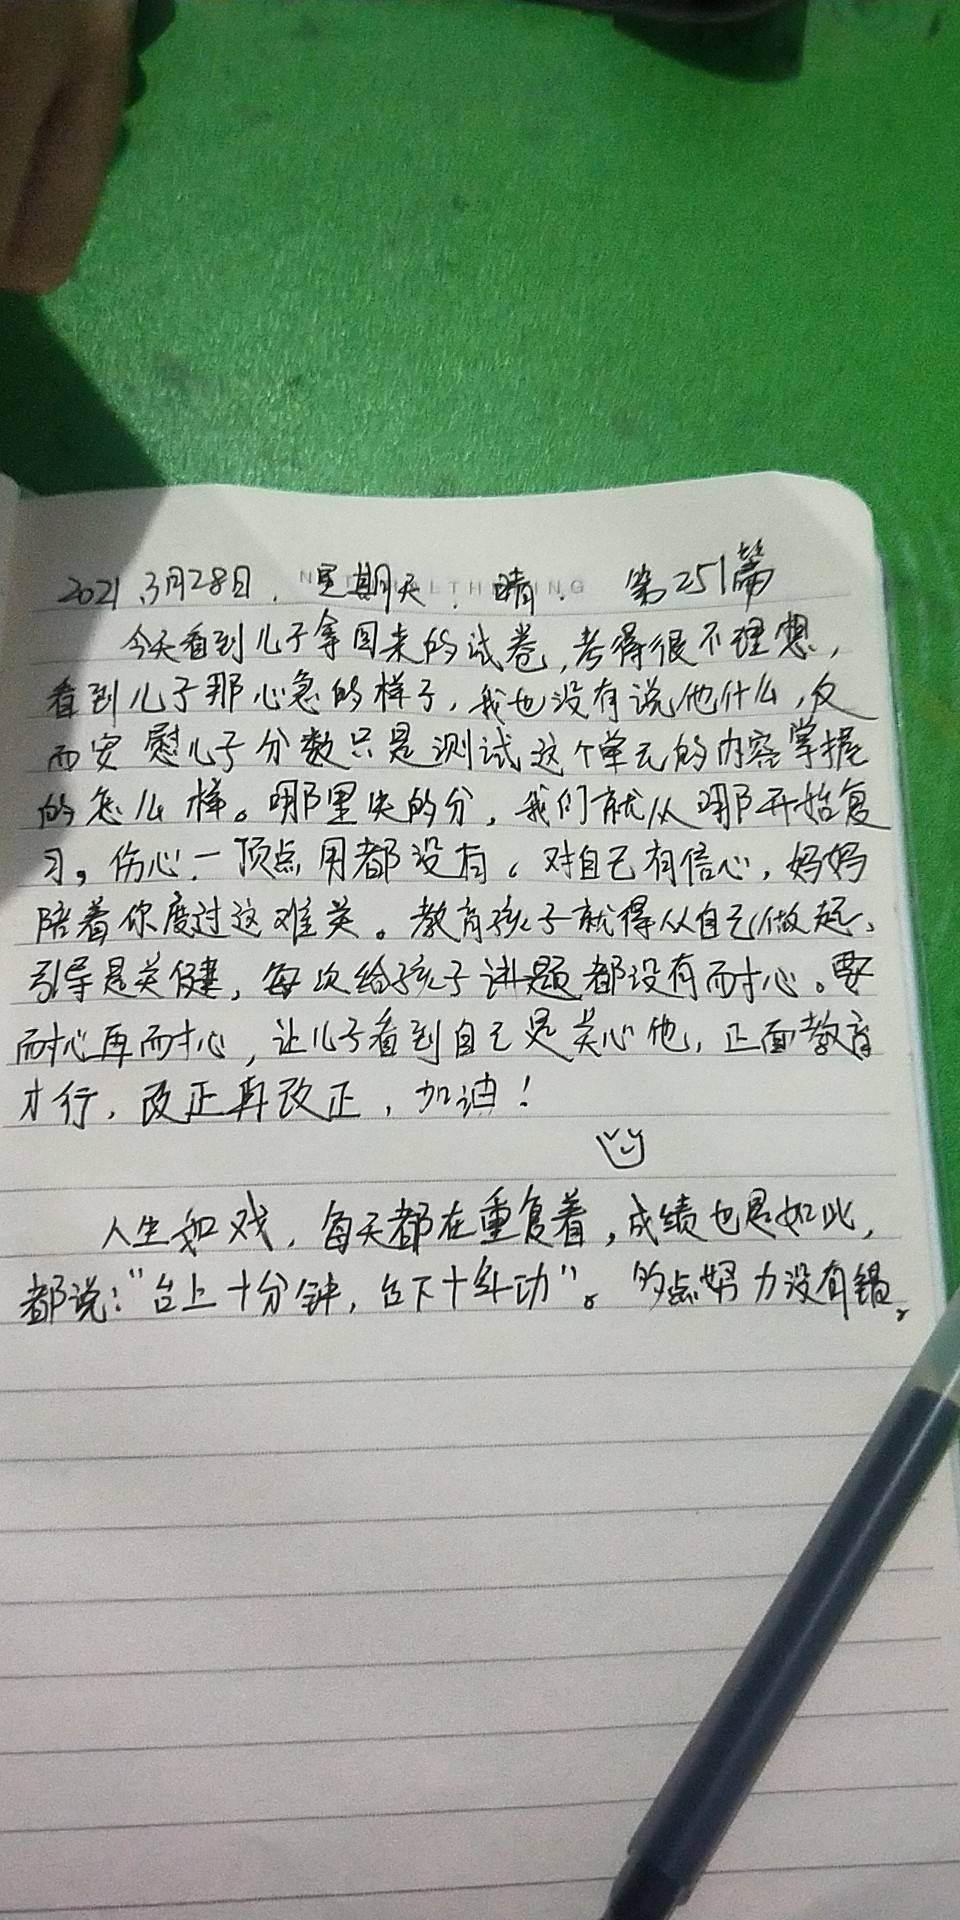 2021.3月28日. 星期天. 晴. 第251篇
今天看到儿子拿回来的试卷,考得很不理想,
看到儿子那心急的样子,我也没有说他什么,反
而安慰儿子分数只是测试这个单元的内容掌握
的怎么样。哪里失的分,我们就从哪开始复
习。伤心一顶点用都没有。对自己有信心,妈妈
陪着你度过这难关。教育孩子就得从自己做起、
引导是关健,每次给孩子讲题都没有耐心。要
耐心再耐心,让儿子看到自己是关心他,正面教育
才行,改正再改正,加油!
人生如戏,每天都在重复着,成绩也是如此,
都说:“台上十分钟,台下十年功”。多点努力没有错。